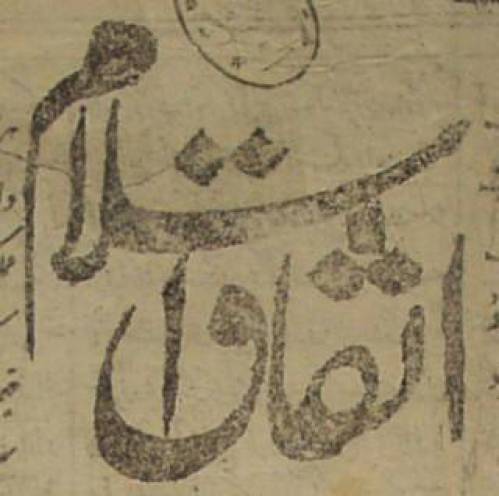 اتفاق
اسلام